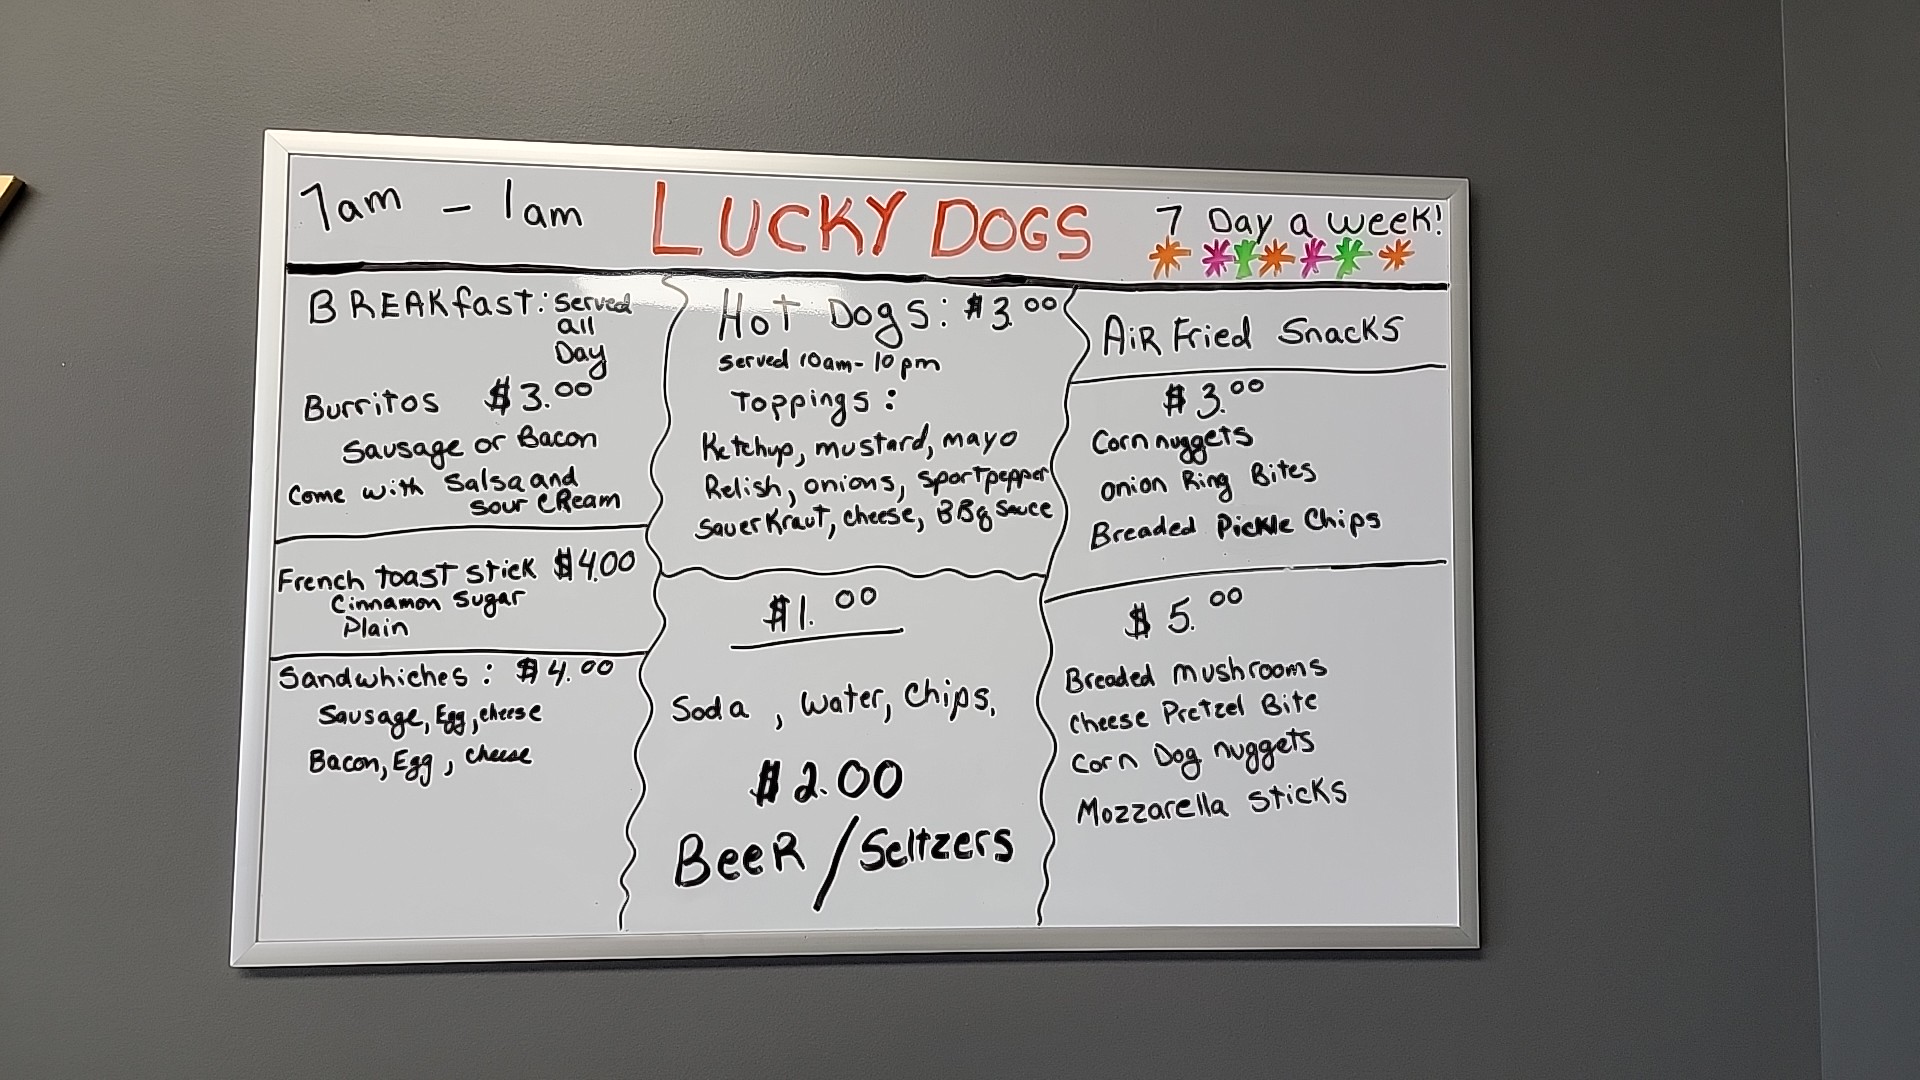 7am - 1am LUCKY DOGS 7 Day a week!
BREAKfast: Served
all
Day
Burritos $3.00
Sausage or Bacon
Come with Salsa and
Sour CReam
French toast stick $4.00
Cinnamon Sugar
Plain
Sandwhiches: $4.00
Sausage, Egg, cheese
Bacon, Egg, cheese
Hot Dogs: $3.00
Served 10am-10pm
Toppings:
Ketchup, mustard, mayo
Relish, onions, Sportpepper
SauerKraut, cheese, BBq Sauce
$1.00
Soda, Water, Chips,
$2.00
BeeR/Seltzers
AiR Fried Snacks
$3.00
Corn nuggets
onion Ring Bites
Breaded Pickle Chips
$5.00
Breaded mushrooms
Cheese Pretzel Bite
Corn Dog nuggets
Mozzarella Sticks